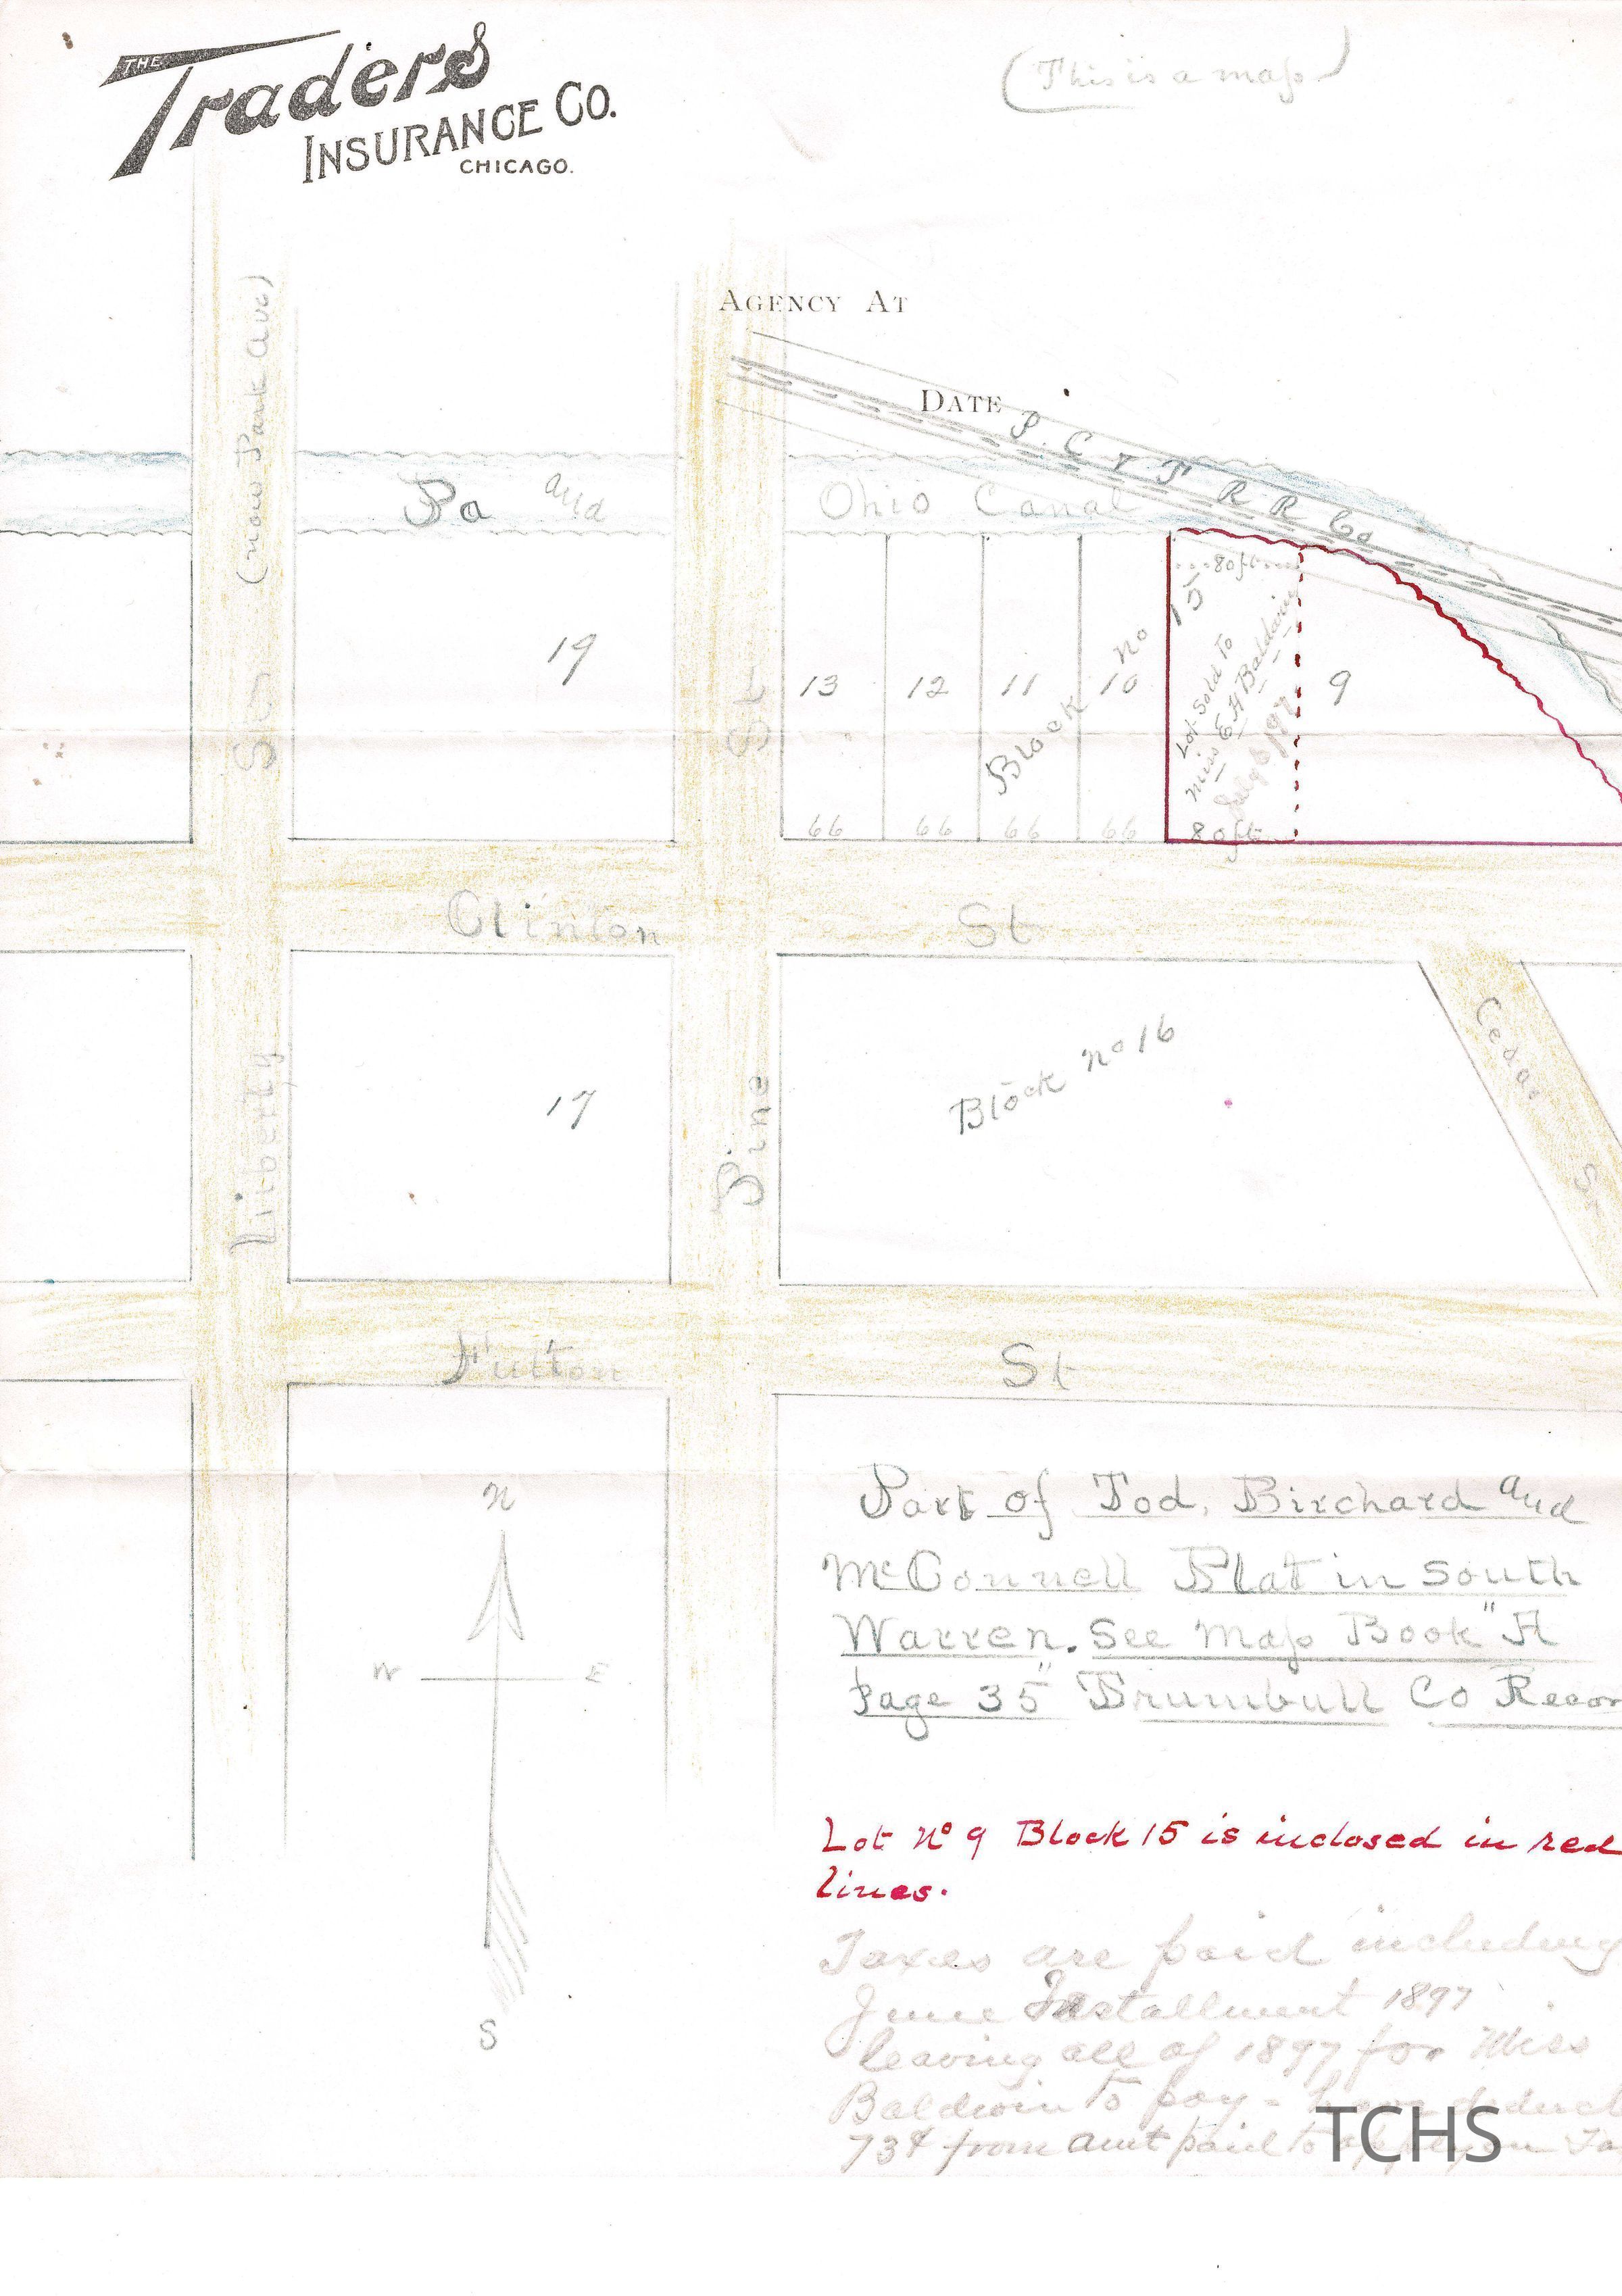 THE
Traders
INSURANCE CO.
CHICAGO.
(This is a map)
AGENCY AT
DATE
P. C & T R R Co
(now Park Ave)
Pa and Ohio Canal
19
St
St
13
12
11
10
Block no 15
80 ft
Lot Sold To
Miss E A Baldwin
July 6/97
9
66
66
66
66
80 ft
Clinton St
Liberty
17
Pine
Block no 16
Cedar St
Fulton St
N
W E
S
Part of Tod, Birchard and
McConnell Plat in South
Warren. See Map Book "A
Page 35" Trumbull Co Recor
Lot No 9 Block 15 is inclosed in red
lines.
Taxes are paid including
June Installment 1897
leaving all of 1897 for Miss
Baldwin to pay - have deduct
73¢ from amt paid to apply on Ta
TCHS